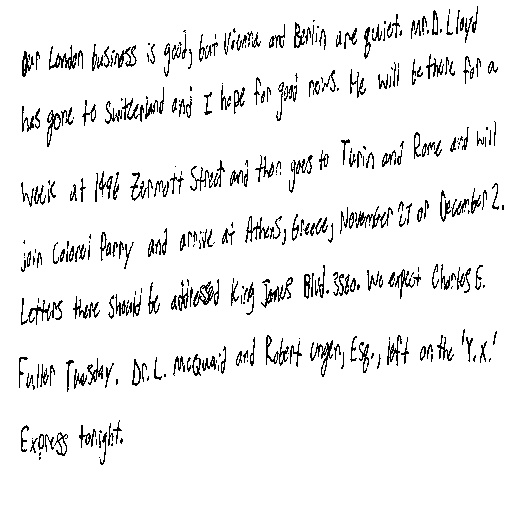 Our London business is good, but Vienna and Berlin are quiet. Mr. D. Lloyd
has gone to Switzerland and I hope for good news. He will be there for a
week at 1496 Zermott Street and then goes to Turin and Rome and will
join Colonel Parry and arrive at Athens, Greece, November 27 or December 2.
Letters there should be addressed King James Blvd. 3580. We expect Charles E.
Fuller Tuesday. Dr. L. McQuaid and Robert Unger, Esq., left on the 'Y.X.'
Express tonight.